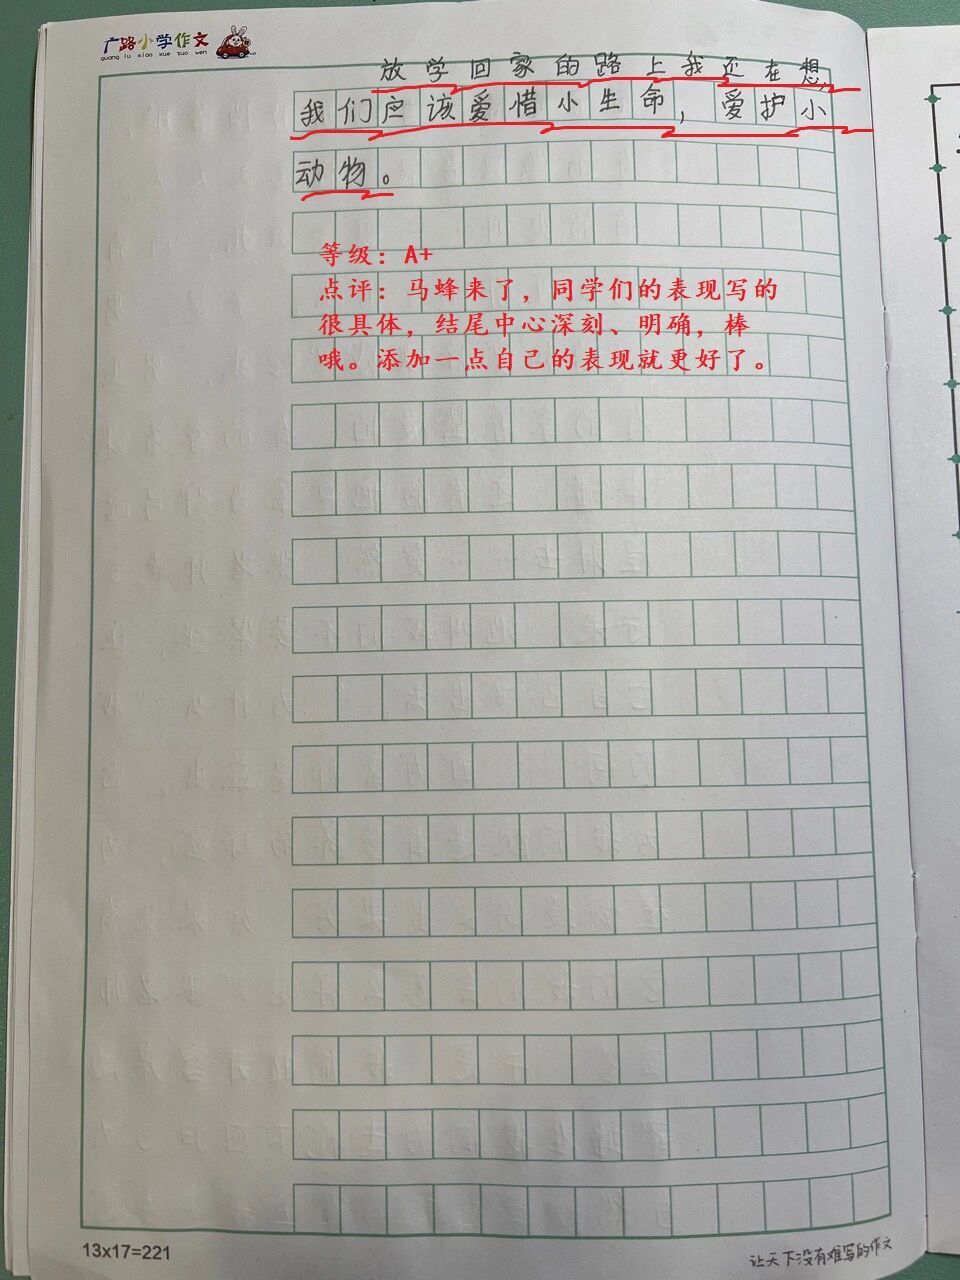 广路小学作文
guang lu xiao xue zuo wen
放学回家的路上我还在想,
我们应该爱惜小生命,爱护小
动物。
等级：A+
点评：马蜂来了，同学们的表现写的
很具体，结尾中心深刻、明确，棒
哦。添加一点自己的表现就更好了。
13x17=221
让天下没有难写的作文